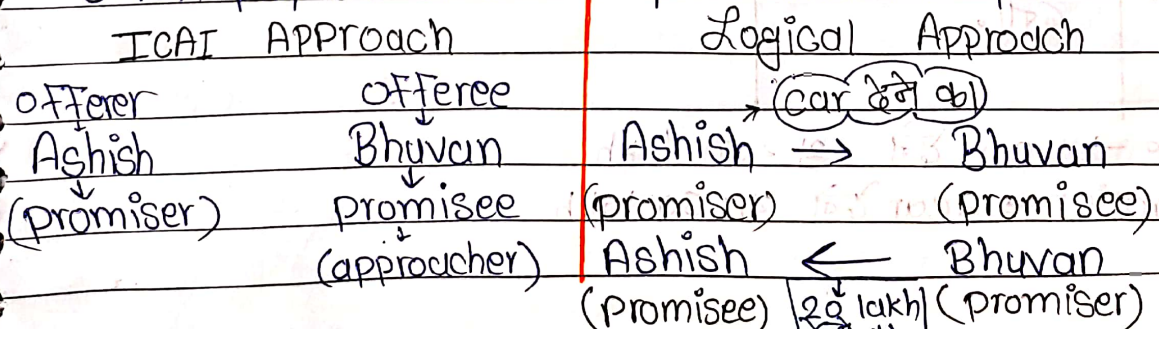 ICAI Approach
offerer offeree
Ashish Bhuvan
(promiser) promisee
(approacher)
Logical Approach
(car देने का)
Ashish → Bhuvan
(promiser) (promisee)
Ashish ← Bhuvan
(promisee) lakh (promiser)